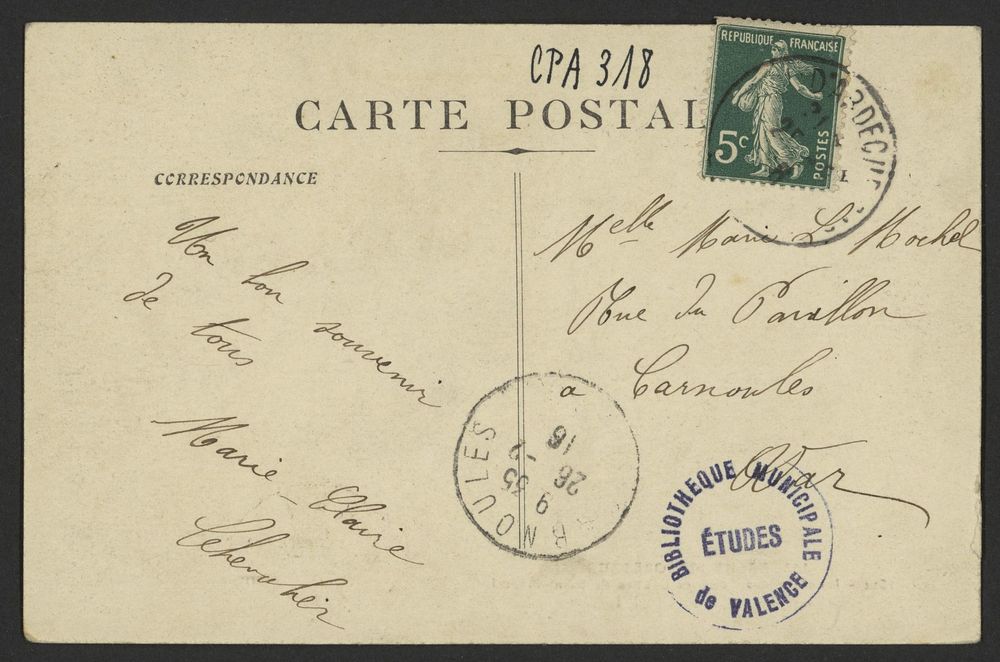 CPA 318
CARTE POSTAL
RÉPUBLIQUE FRANÇAISE
5c
POSTES
CORRESPONDANCE
Un bon souvenir
de tous
Marie-Claire
Melle Marie L
Rue du Pavillon
a Carnoules
Var
RNOULES
9 35
26 -2
16
BIBLIOTHEQUE MUNICIPALE
ÉTUDES
de VALENCE